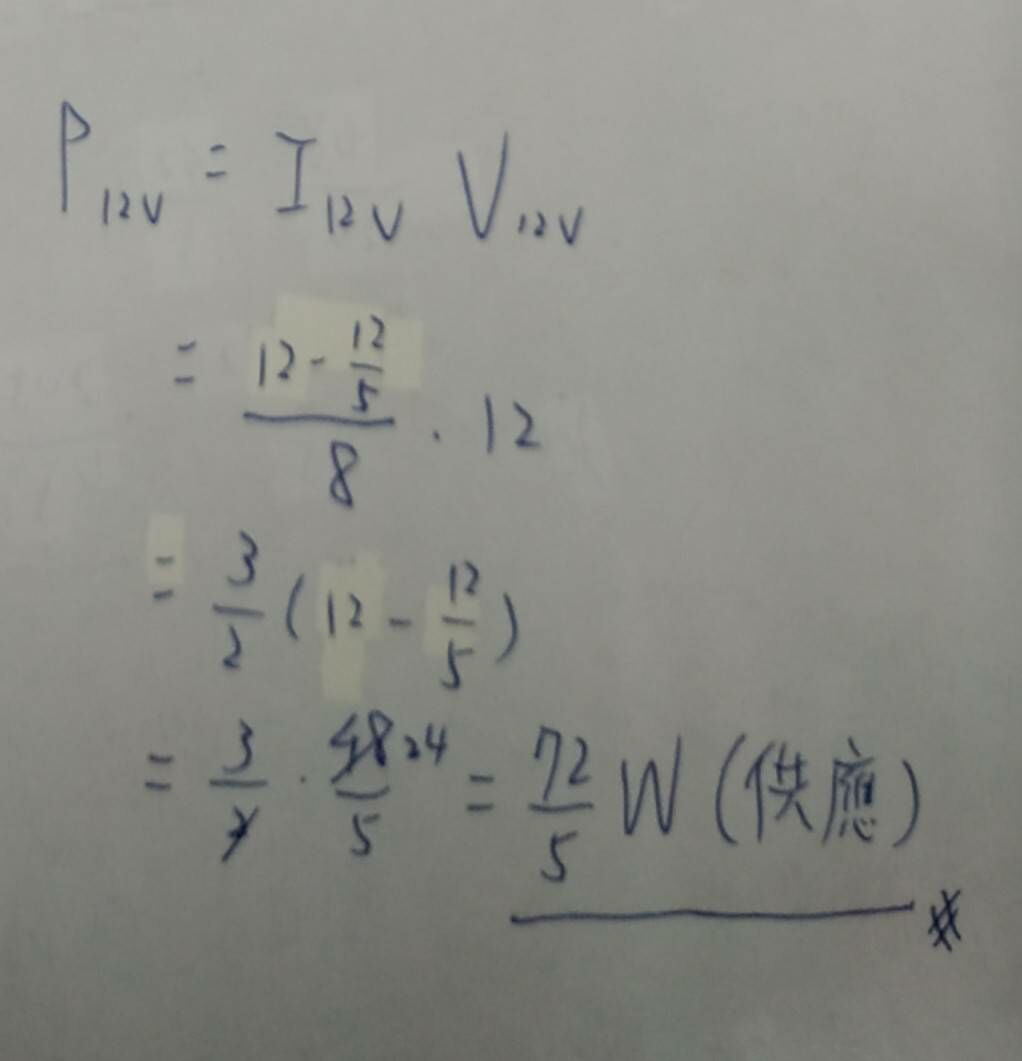 P₁₂ᵥ = I₁₂ᵥ V₁₂ᵥ
= (12 - 12/5)/8 · 12
= 3/2 (12 - 12/5)
= 3/2 · 48/5 24 = 72/5 W (供應) #